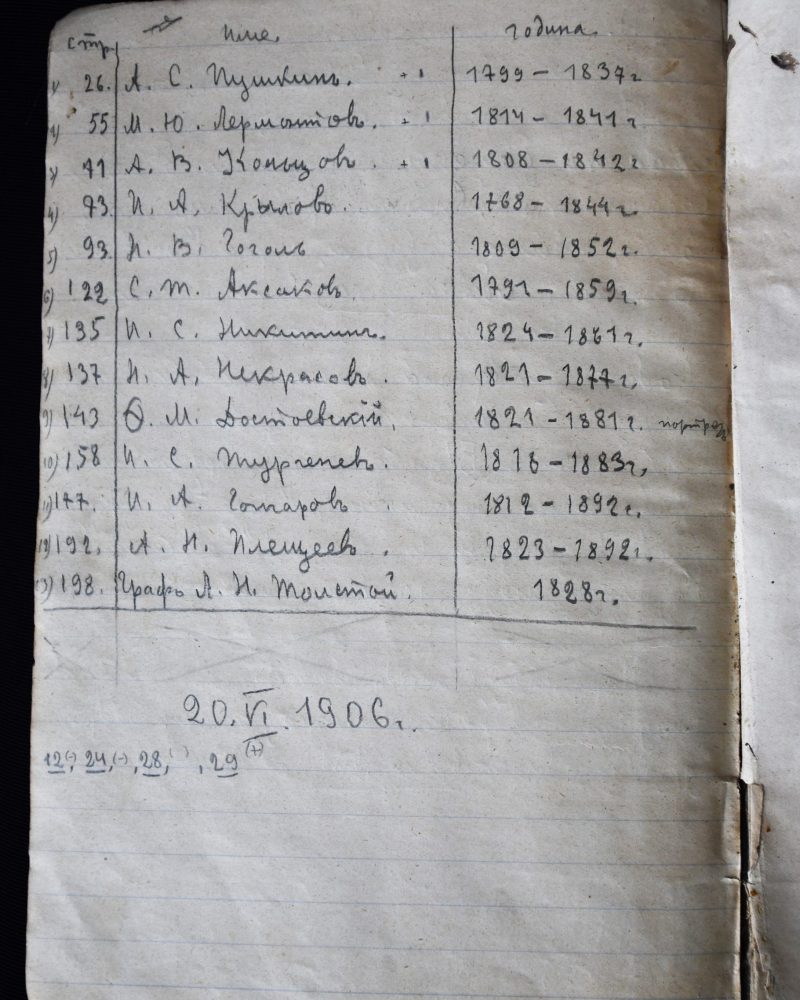 стр. име. година.
1) 26. А. С. Пушкинъ. 1799 – 1837 г.
2) 55 М. Ю. Лермонтовъ. 1814 – 1841 г.
3) 71 А. В. Кольцовъ. 1808 – 1842 г.
4) 73. И. А. Крыловъ. 1768 – 1844 г.
5) 93. Н. В. Гоголь 1809 – 1852 г.
6) 122 С. Т. Аксаковъ. 1791 – 1859 г.
7) 135 И. С. Никитинъ. 1824 – 1861 г.
8) 137 Н. А. Некрасовъ. 1821 – 1877 г.
9) 143 Ѳ. М. Достоевскій. 1821 – 1881 г. портрет
10) 158 И. С. Тургеневъ. 1818 – 1883 г.
11) 177. И. А. Гончаровъ. 1812 – 1892 г.
12) 192. А. Н. Плещеевъ. 1823 – 1892 г.
13) 198. Графъ Л. Н. Толстой. 1828 г.
20. VI. 1906 г.
12(-), 24,(-), 28, , 29 (+)